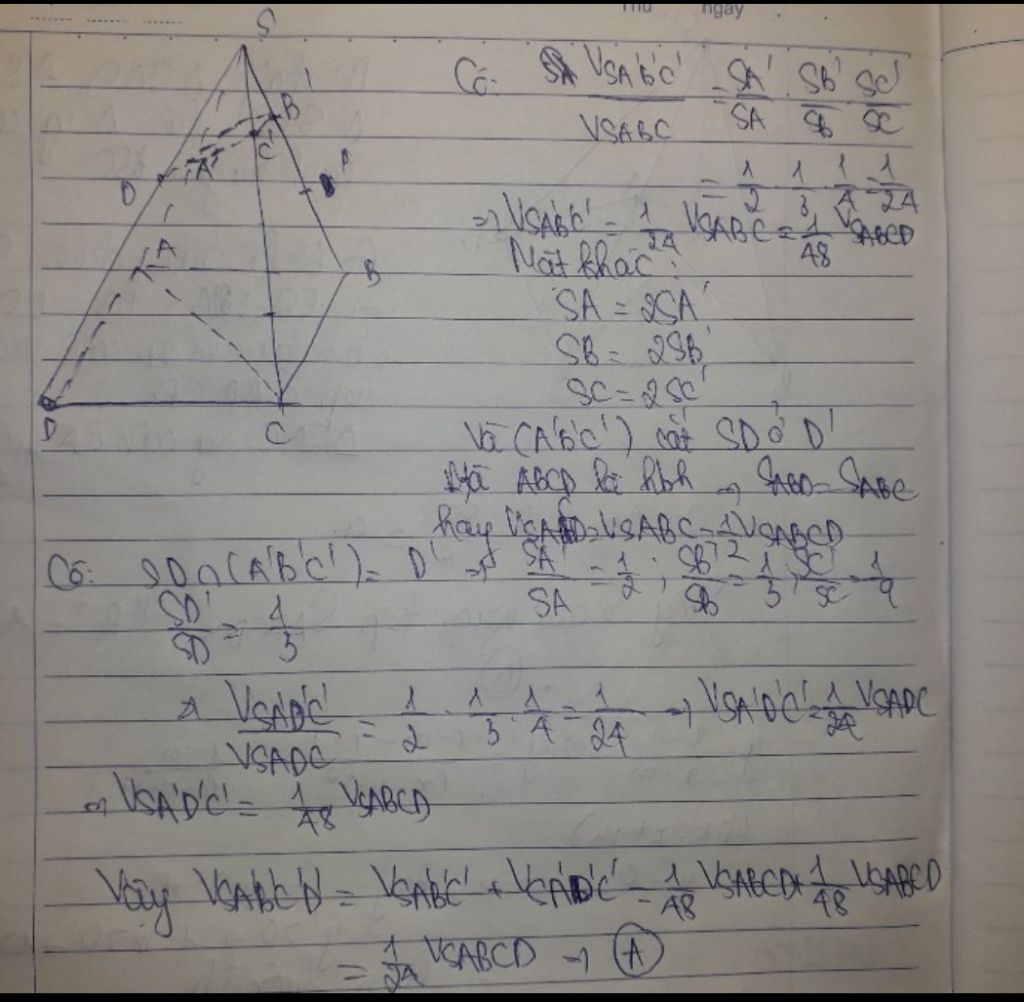 Thứ ngày
S
B'
C'
A'
D
D'
A
B
D
C
Có: VSA'B'C' / VSABC = SA'/SA . SB'/SB . SC'/SC
= 1/2 . 1/3 . 1/4 = 1/24
=> VSA'B'C' = 1/24 VSABC = 1/48 VSABCD
Mặt khác:
SA = 2SA'
SB = 2SB'
SC = 2SC'
Và (A'B'C') cắt SD ở D'
Mà ABCD là hbh => SABD = SABC
hay VSABD = VSABC = 1/2 VSABCD
Có: SD ∩ (A'B'C') = D' => SA'/SA = 1/2 ; SB'/SB = 1/3 ; SC'/SC = 1/4
SD'/SD = 1/3
=> VSA'D'C' / VSADC = 1/2 . 1/3 . 1/4 = 1/24 => VSA'D'C' = 1/24 VSADC
=> VSA'D'C' = 1/48 VSABCD
Vậy VSA'B'C'D' = VSA'B'C' + VSA'D'C' = 1/48 VSABCD + 1/48 VSABCD
= 1/24 VSABCD => A